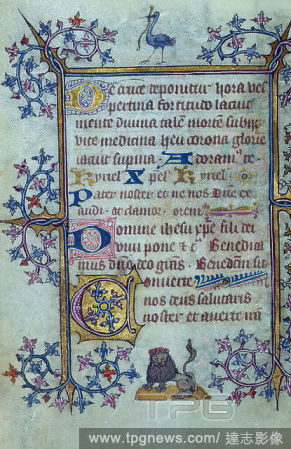 De cruce deponitur hora ves
pertina fortitudo latuit
mente divina talem mortem subiit
vite medicina heu corona glorie
iacuit supina. Adoramus te.
Kyriel Xpel Kyriel
Pater noster et ne nos Dne ex
audi et clamor. oremus
Domine ihesu xpe fili dei
vivi pone et c̄ Benedica
mus dno deo gias. Benedicam sit
Converte
nos deus salutaris
noster et averte iram
TPG
www.tpgnews.com / 達志影像